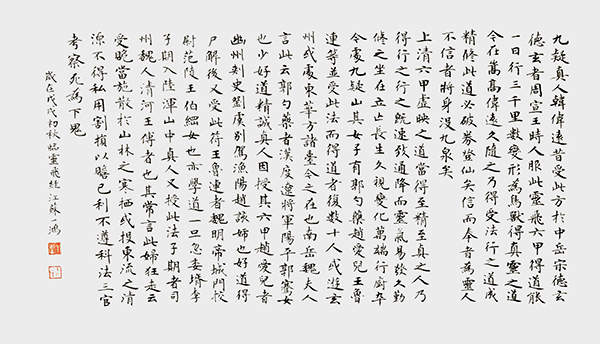 九疑真人韓偉遠昔受此方於中岳宗德玄
德玄者周宣王時人服此靈飛六甲得道能
一日行三千里數變形為鳥獸得真靈之道
今在嵩高偉遠久隨之乃得受法行之道成
精修此道必破券登仙矣信而奉者為靈人
不信者將身沒九泉矣
上清六甲虛映之道當得至精至真之人乃
得行之行之既速致通降而靈氣易發久勤
修之坐在立亡長生久視變化萬端行廚卒
令處九疑山其女子有郭勺藥趙愛兒王魯
連等並受此法而得道者復數十人或遊玄
州或處東華方諸臺今之在也南岳魏夫人
言此云郭勺藥者漢度遼將軍陽平郭騫女
也少好道精誠真人因授其六甲趙愛兒者
幽州刺史劉虞別駕漁陽趙該婦也好道得
尸解後又受此符王魯連者魏明帝城門校
尉范陵王伯綱女也亦學道一旦忽委壻李
子期入陸渾山中真人又授此法子期者司
州魏人清河王傅者也其常言此婦狂走云
受晚當施散於山林之寒栖或投東流之清
源不得私用割損以贍己利不遵科法三官
考察死為下鬼
歲在戊戌初秋臨靈飛經江蘇鴻